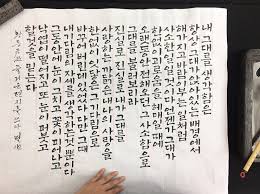 내 그대를 생각함은
항상 그대가 앉아있는 배경에서
해가 지고 바람이 부는 일처럼
사소한 일일 것이나 언젠가 그대가
한없이 괴로움 속을 헤매일 때에
오랫동안 전해오던 그 사소함으로
그대를 불러보리라
진실로 진실로 내가 그대를
사랑하는 까닭은 내 나의 사랑을
한없이 잇닿은 그 기다림으로
바꾸어 버린데 있었다 다만 그때
내 기다림의 자세를 생각하는 것뿐이다
그동안에 눈이 그치고 꽃이 피나고
낙엽이 떨어지고 또 눈이 퍼붓고
할것을 믿는다
즐거운 편지를 쓰다